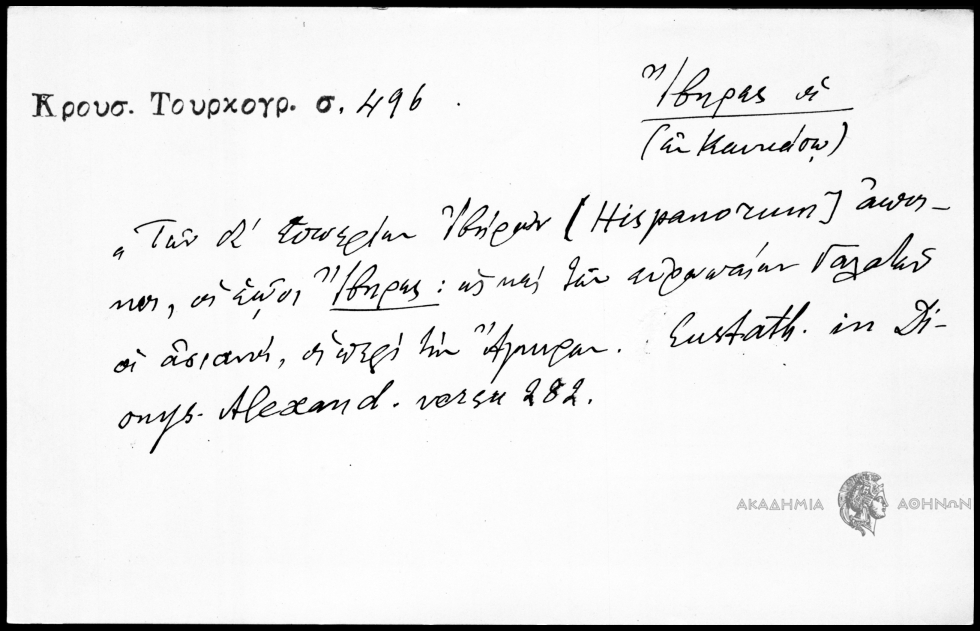 Κρουσ. Τουρκογρ. σ. 496.
Ἴβηρες οἱ
(ἐν Καυκάσῳ)
„Τῶν δ' ἑσπερίων Ἰβήρων [Hispanorum] ἄποι-
κοι, οἱ ἑῷοι Ἴβηρες: ὡς καὶ τῶν εὐρωπαίων Γαλατῶν
οἱ ἀσιανοί, οἱ περὶ τὴν Ἄγκυραν. Eustath. in Di-
onys. Alexand. versu 282.
ΑΚΑΔΗΜΙΑ ΑΘΗΝΩΝ